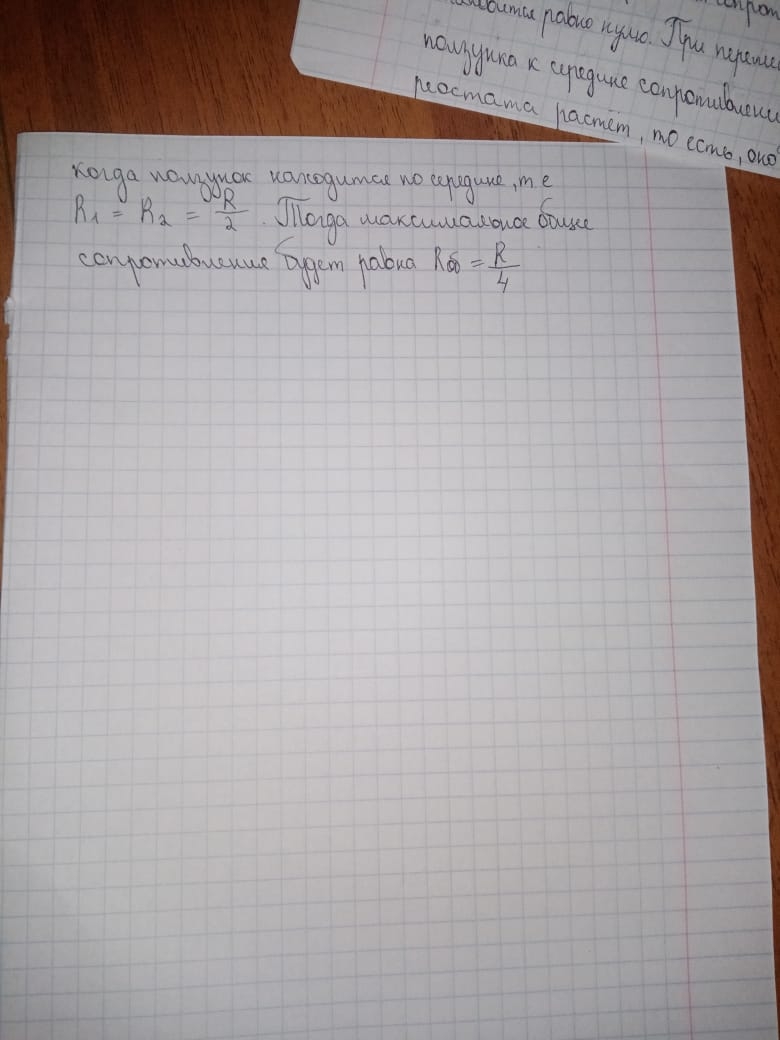 равно нулю. При переме
ползунка к середине сопротивлени
реостата растёт, то есть, оно
когда ползунок находится по середине, т.е
R₁ = R₂ = R/2. Тогда максимальное
сопротивление будет равна Rоб = R/4